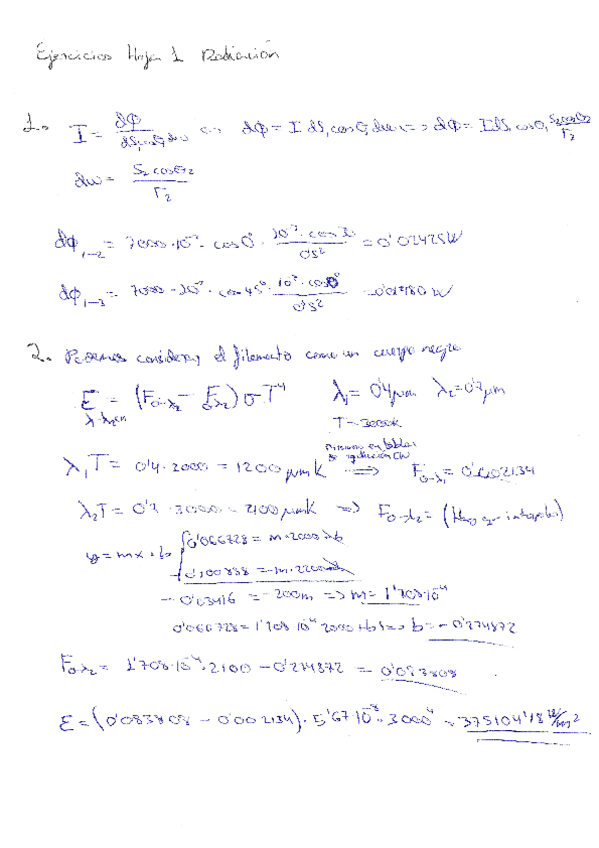 Ejercicios Hoja 1 Radiación
1. I = dΦ / dS₁cosθ₁dw ⇔ dΦ = I dS₁ cosθ₁ dw => dΦ = I dS₁ cosθ₁ S₂cosθ₂ / r₂
dw = S₂ cosθ₂ / r₂
dΦ₁₋₂ = 7000 · 10⁻³ · cos0 · 10⁻³ · cos30 / 0'5² = 0'02425W
dΦ₁₋₃ = 7000 · 10⁻³ · cos 45° · 10⁻³ · cos0° / 0'5² = 0'01980 W
2. Podemos considerar el filamento como un cuerpo negro
E = (F₀₋λ₂ - F₀₋λ₂) σT⁴ λ₁ = 0'4μm λ₂ = 0'7μm
T = 3000K
λ₁T = 0'4 · 3000 = 1200 μmK => F₀₋λ₁ = 0'002134
λ₂T = 0'7 · 3000 = 2100 μmK => F₀₋λ₂ = (Hay que interpolar)
y = mx + b { 0'066728 = m · 2000 + b
-0'100888 = -m · 2200 - b
-0'03416 = -200m => m = 1'708·10⁻⁴
0'066728 = 1'708·10⁻⁴ 2000 + b => b = -0'274872
F₀₋λ₂ = 1'708·10⁻⁴ · 2100 - 0'274872 = 0'083808
E = (0'083808 - 0'002134) · 5'67·10⁻⁸ · 3000⁴ = 375104'18 W/m²